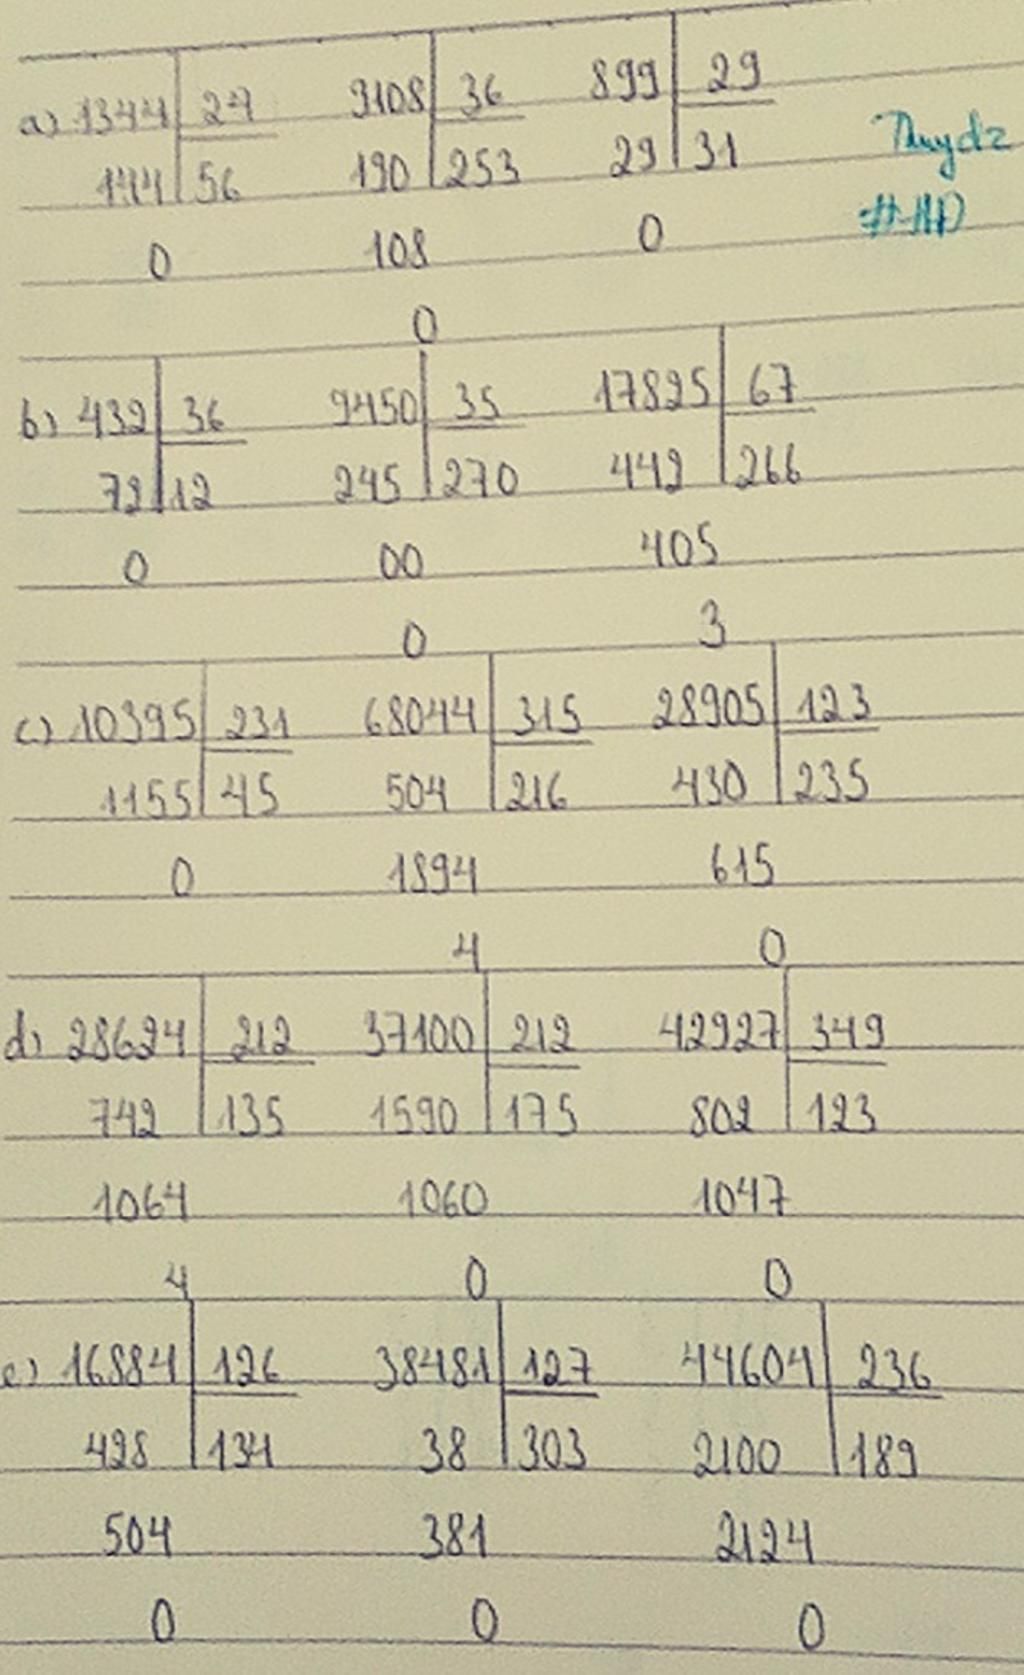 a) 1344 24 9108 36 899 29
144 56 190 253 29 31
0 108 0
0
b) 432 36 9450 35 17825 67
72 12 245 270 442 266
0 00 405
0 3
c) 10395 231 68044 315 28905 123
1155 45 504 216 430 235
0 1894 615
4 0
d) 28624 212 37100 212 42927 349
742 135 1590 175 802 123
1064 1060 1047
4 0 0
e) 16884 126 38481 127 44604 236
428 134 38 303 2100 189
504 381 2124
0 0 0